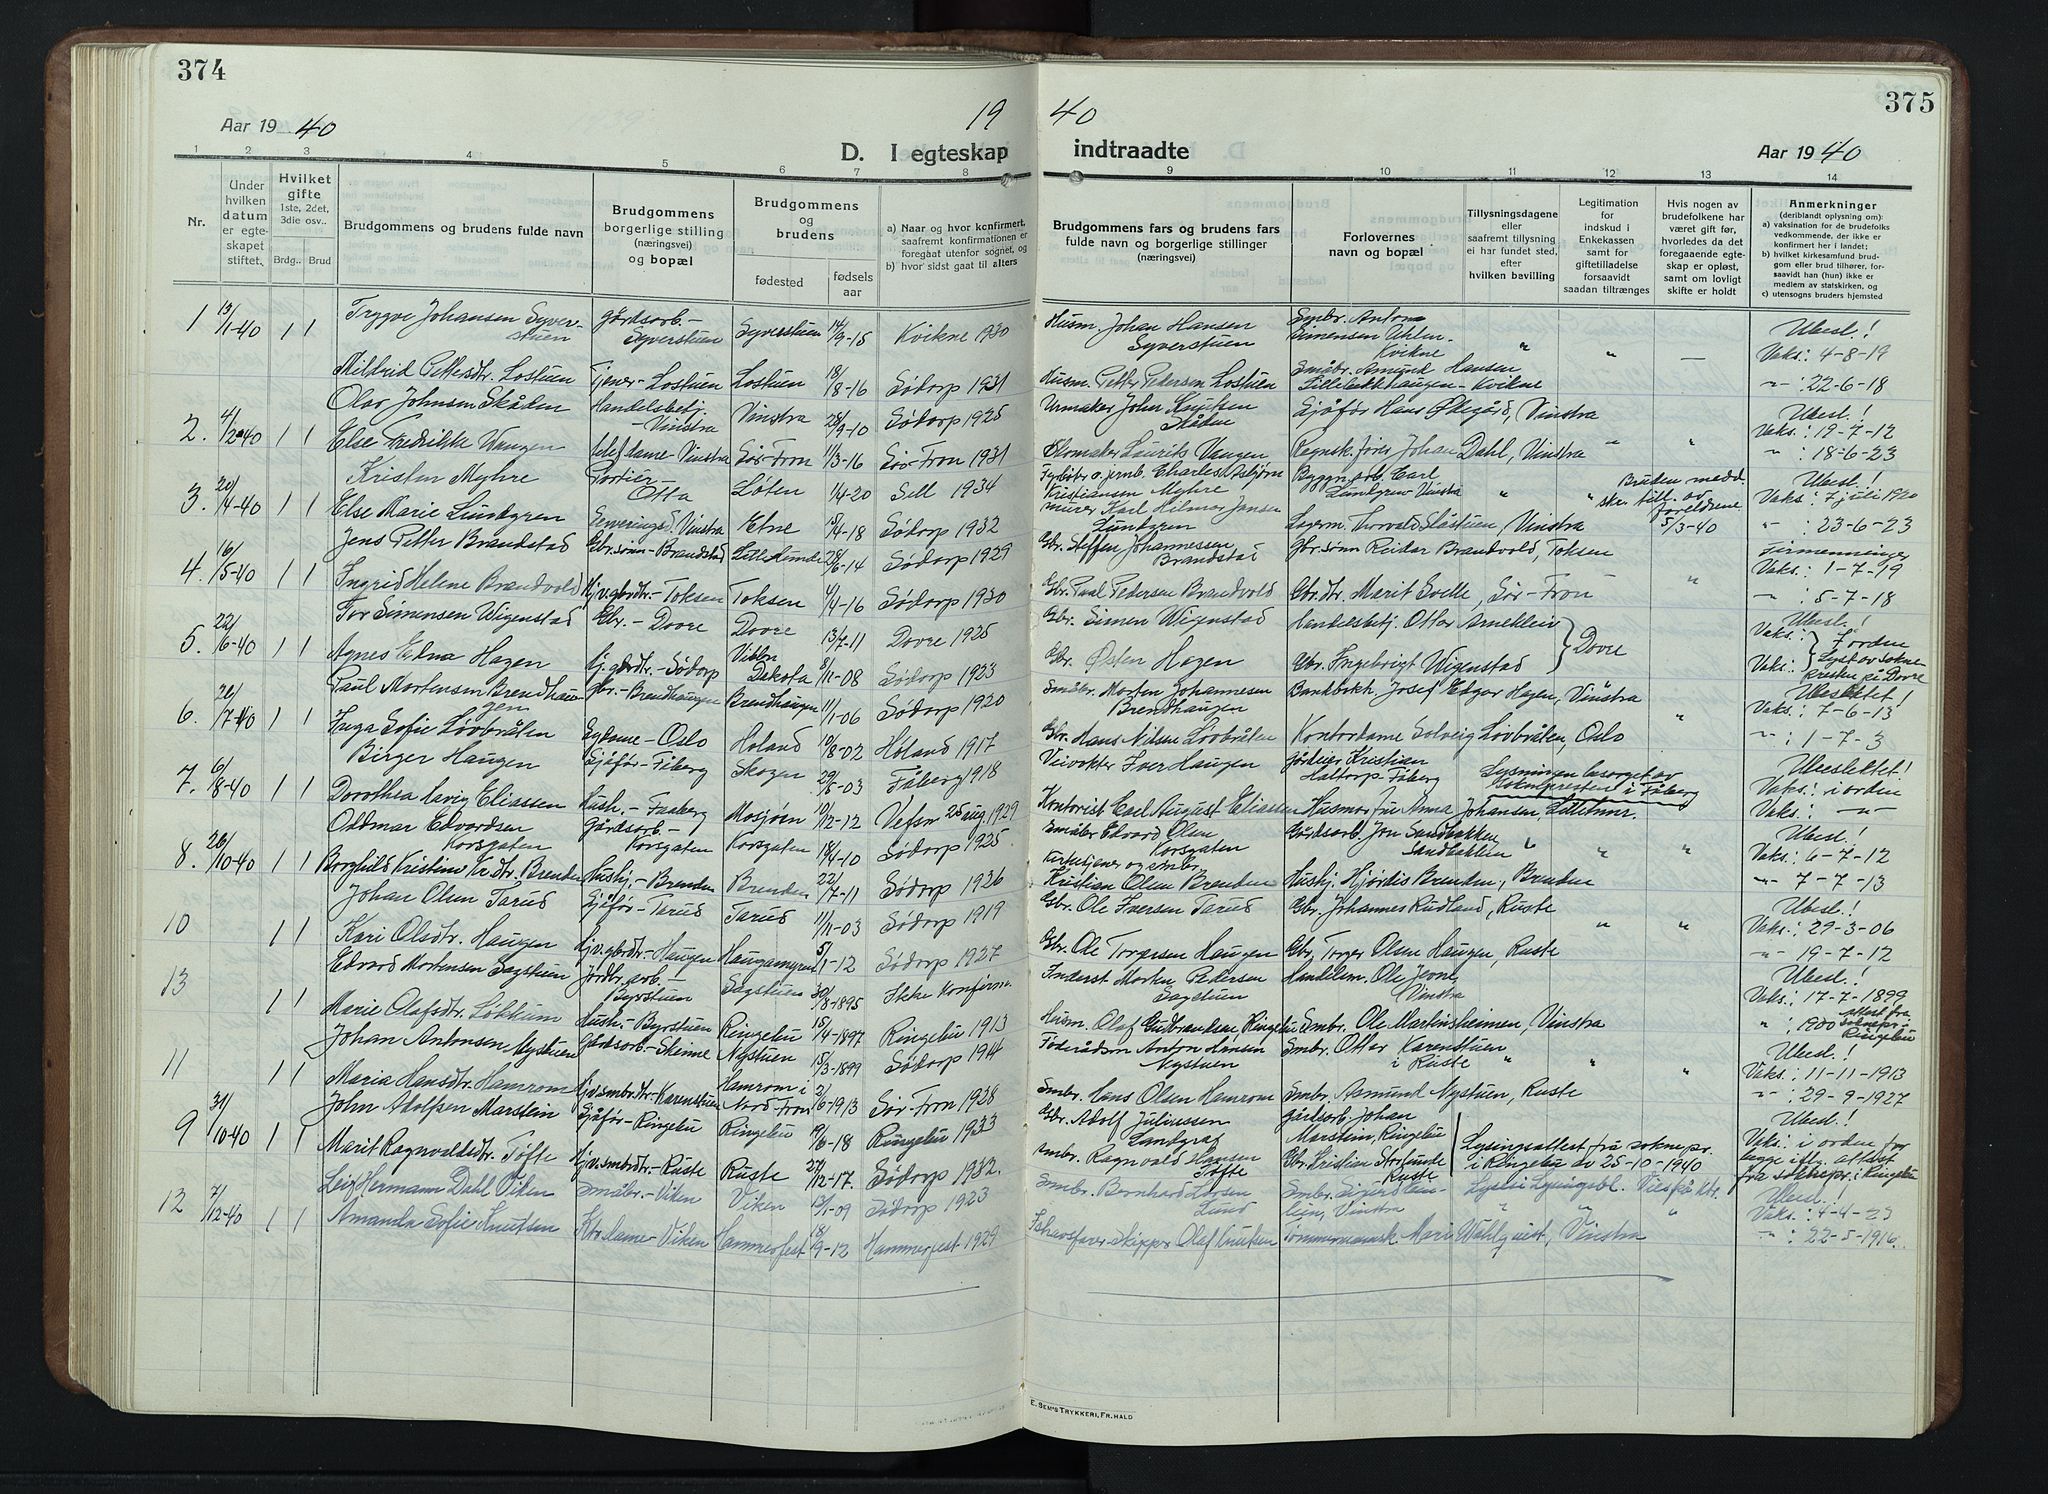 374
375
Aar 19 40
19
40
Aar 19 40
D. I egteskap
indtraadte
1 2 3 4 5 6 7 8
9 10 11 12 13 14
Nr.
Under hvilken datum er egteskapet stiftet.
Hvilket gifte 1ste, 2det, 3die osv..
Brdg.. Brud
Brudgommens og brudens fulde navn
Brudgommens borgerlige stilling (næringsvei) og bopæl
Brudgommens og brudens
fødested
fødsels aar
a) Naar og hvor konfirmert, saafremt konfirmationen er foregaat utenfor sognet, og
b) hvor sidst gaat til alters
Brudgommens fars og brudens fars fulde navn og borgerlige stillinger (næringsvei)
Forlovernes navn og bopæl
Tillysningsdagene eller saafremt tillysning ei har fundet sted, efter hvilken bevilling
Legitimation for indskud i Enkekassen samt for giftetilladelse forsaavidt saadan tiltrænges
Hvis nogen av brudefolkene har været gift før, hvorledes da det foregaaende egteskap er opløst, samt om lovligt skifte er holdt
Anmerkninger (deriblandt oplysning om):
a) vaksination for de brudefolks vedkommende, der ikke er konfirmert her i landet;
b) hvilket kirkesamfund brudgom eller brud tilhører, forsaavidt han (hun) ikke er medlem av statskirken, og
c) utensogns bruders hjemsted
1 13/1-40 1 1 Trygve Johansen Syverstuen gårdsarb.- Syverstuen Syverstuen 14/9-15 Kvikne 1930 Husm. Johan Hansen Syverstuen Smbr. Anton Simensen Uhlen Kvikne " " — Ubesl.! Vaks: 4-8-19
Mildrid Pettersdtr. Lostuen Tjener-Lostuen Lostuen 13/8-16 Sødorp 1931 Husm. Petter Pedersen Lostuen Småbr. Amund Hansen Lillebekkhaugen-Kvikne -"-: 22-6-18
2. 4/2-40 1 1 Olav Johnsen Skåden Handelsbetj. -Vinstra Vinstra 28/9-10 Sødorp 1925 Urmaker John Knutsen Skåden Sjåfør Hans Ødegård, Vinstra " " Ubesl.! Vaks.: 19-7-12
Else Fredrikke Vangen telefdame-Vinstra Sør-Fron 11/3-16 Sør-Fron 1931 Laurits Vangen Regnsk.fører Johan Dahl, Vinstra " : 18-6-23
3. 20/4-40 1 1 Kristen Myhre Portier- Otta Løten 1/4-20 Sell 1934 Charles Asbjørn Kristiansen Myhre Byggn.arb. Carl Lundgren-Vinstra " " Bruden medd. ske till. av foreldrene 5/3-40 Ubesl.! Vaks: 7 juli 1920
Else Marie Lundgren Serveringsd. Vinstra Etne 15/4-18 Sødorp 1932 murer Karl Hilmer Jansen Lundgren Lagerm. Thorvald Slåstuen, Vinstra " : 23-6-23
4. 16/5-40 1 1 Jens Petter Brandstad Gbr.sønn-Brandstad 28/6-14 Sødorp 1929 Gbr. Steffen Johannessen Brandstad Gbr.sønn Reidar Brandvold, Toksen " Firmenninger Vaks.: 1-7-19
Ingrid Helene Brandvold Hjv.gbrdtr.-Toksen Toksen 4/4-16 Sødorp 1930 Gbr. Paul Pedersen Brandvold Gbr.dtr. Marit Solle, Sør-Fron -"-: 5-7-18
5. 22/6-40 1 1 Tor Simensen Wigenstad Gbr.-Dovre Dovre 13/7-11 Dovre 1925 Gbr. Simen Wigenstad Handelsbetj. Ottar Arneklein } Dovre Ubesl.! Vaks.: } I orden
Agnes Edna Hagen Hj.gbrdtr.-Sødorp Dakota 8/11-08 Sødorp 1923 Gbr. Østen Hagen Gbr. Ingebrigt Wigenstad Vaks: Lyst av soknepresten på Dovre
6. 26/7-40 1 1 Paul Mortensen Brendhaugen Gbr.-Brendhaugen Brendhaugen 11/1-06 Sødorp 1920 Småbr. Morten Johannesen Brendhaugen Bankbokh. Josef Edgar Hagen, Vinstra " Ubeslektet! Vaks.: 7-6-13
Inga Sofie Løvbråten Sydame-Oslo Høland 10/8-02 Høland 1917 Gbr. Hans Nilsen Løvbråten Kontordame Solveig Løvbråten, Oslo -"-: 1-7-3
7. 6/8-40 1 1 Birger Haugen Sjåfør-Fåberg Skogen 29/5-03 Fåberg 1918 Veivokter Iver Haugen gårdeier Kristian Haltorp-Fåberg Lysningen besørget av soknepresten i Fåberg Ubeslektet! Vaks: i orden
Dorothea Eliassen Hush.-Faaberg Mosjøen 10/12-12 Vefsn 25 aug. 1929 Kontorist Carl August Eliassen Husmor fru Anna Johansen, Lillehmr. Vaks: -"-
8. 26/10-40 1 1 Oddmar Edvardsen Korsgaten Gårdsarb.- Korsgaten Korsgaten 18/4-10 Sødorp 1925 Småbr Edvard Olsen Korsgaten Gårdsarb. Jon Sandbakken Sandbakken " " " Ubesl.! Vaks: 6-7-12
Borghild Kristine Kr.dtr. Brenden Hushj.-Brenden Brenden 22/7-11 Sødorp 1926 Kirketjener og smbr. Kristian Olsen Brenden Hushj. Hjørdis Brenden, Brenden -"- 7-7-13
10 1 1 Johan Olsen Tarud Sjåfør-Tarud Tarud 11/11-03 Sødorp 1919 Gbr. Ole Iversen Tarud Gbr. Johannes Rudland, Ruste " " Ubesl.! Vaks: 29-3-06
Kari Olsdtr. Haugen Hjv.gbrdtr-Haugen 5/1-12 Sødorp 1927 Gbr. Ole Torgersen Haugen Gbr. Torger Olsen Haugen, Ruste -"- 19-7-12
13 1 1 Edvard Mortensen Sagstuen Jordbr.arb.- Byrstuen Sagstuen 30/8-1895 Ikke konfirm. Inderst Morten Pedersen Sagstuen Handelsm. Ole Jevne Vinstra Ubesl.! Vaks: 17-7-1899
Marie Olafsdtr. Løkkum Hush.-Byrstuen Ringebu 15/4-1897 Ringebu 1913 Husm. Olaf Gudbrandsen, Ringebu Smbr. Ole Martinsheimen, Vinstra " : 1900 attest fra soknepr. i Ringebu
11 1 1 Johan Antonsen Nystuen Gårdsarb.-Skinne Nystuen 15/3-1899 Sødorp 1914 Føderådsm Anton Hansen Nystuen Smbr. Ottar Karenstuen i Ruste " " " Ubesl.! Vaks: 11-11-1913
Maria Hansdtr. Hamrom Hjv.smbrdtr-Karenstuen Hamrom i Nord-Fron 2/6-1913 Sør-Fron 1928 Smbr. Hans Olsen Hamrom Smbr. Asmund Nystuen, Ruste -"-: 29-9-1927
9 31/10-40 1 1 John Adolfsen Marstein Sjåfør-Ringebu Ringebu 19/6-18 Ringebu 1933 Gbr. Adolf Juliussen Lundgraf gårdsarb. Johan Marstein, Ringebu Lysingsattest fra soknepr. i Ringebu av 25-10-1940 Ubesl.! Vaks: i orden for begge iflg. attest fra soknepr. i Ringebu
Marit Ragnvaldsdtr. Tofte Hjv.smbrdtr-Ruste Ruste 27/12-17. Sødorp 1932. Smbr. Ragnvald Hansen Tofte Gbr. Kristian Storlunde Ruste
12 7/12-40 1 1 Leif Hermann Dahl Viken Småbr.-Viken Viken 13/1-09 Sødorp 1923 Smbr. Bernhard Larsen Lund Smbr. Sigurd Vinstra " " " Ubesl.! Vaks: 4-4-23
Amanda Sofie Knutsen Ktr.dame-Viken Hammerfest 18/9-12 Hammerfest 1929 Ishavsfarer-Skipper Olaf Knutsen Mari Wahlquist, Vinstra -"-: 22-5-1916.
E. SEM'S TRYKKERI, FR.HALD